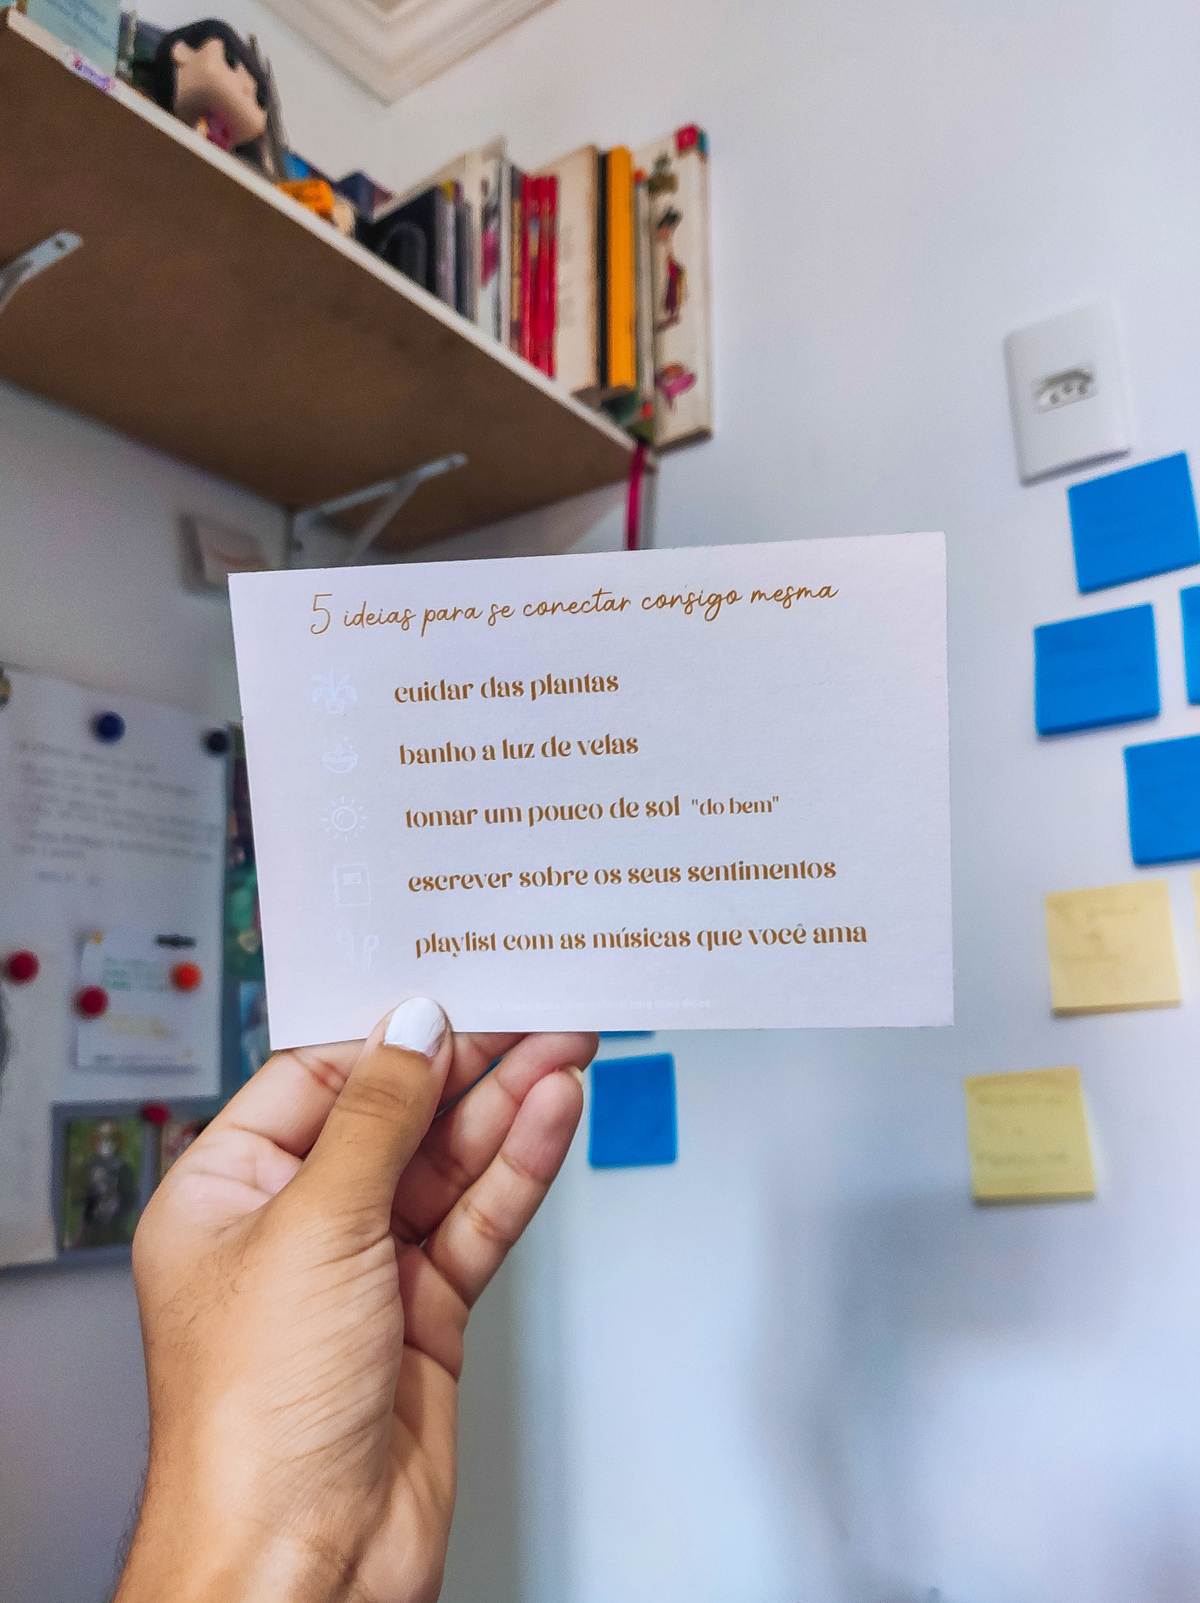 5 ideias para se conectar consigo mesma
cuidar das plantas
banho a luz de velas
tomar um pouco de sol "do bem"
escrever sobre os seus sentimentos
playlist com as músicas que você ama